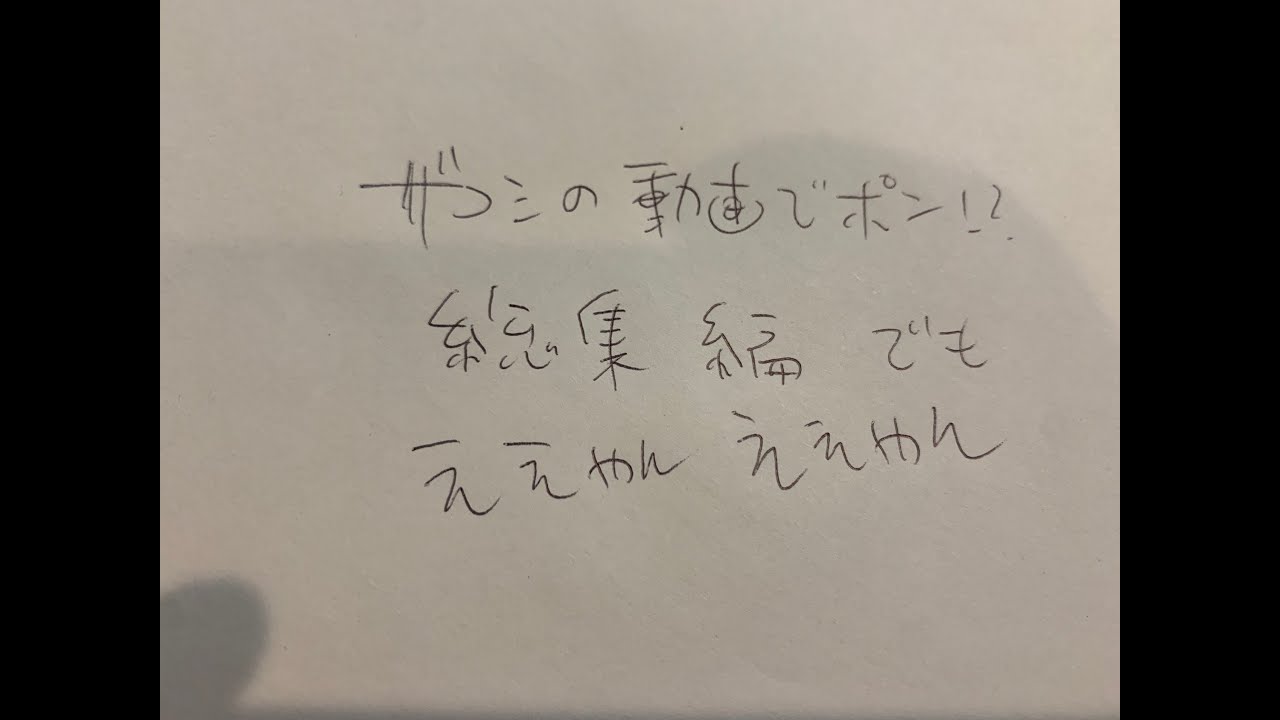 ザコシの動画でポン!?
総集編でも
ええやんええやん